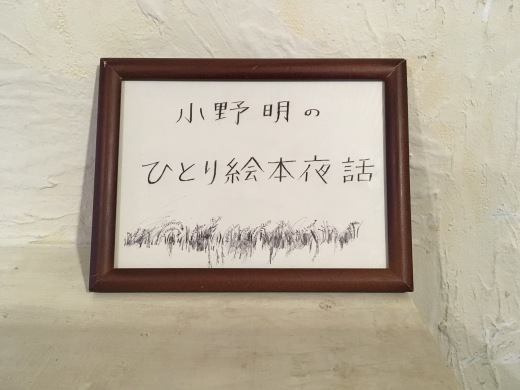 小野明の
ひとり絵本夜話